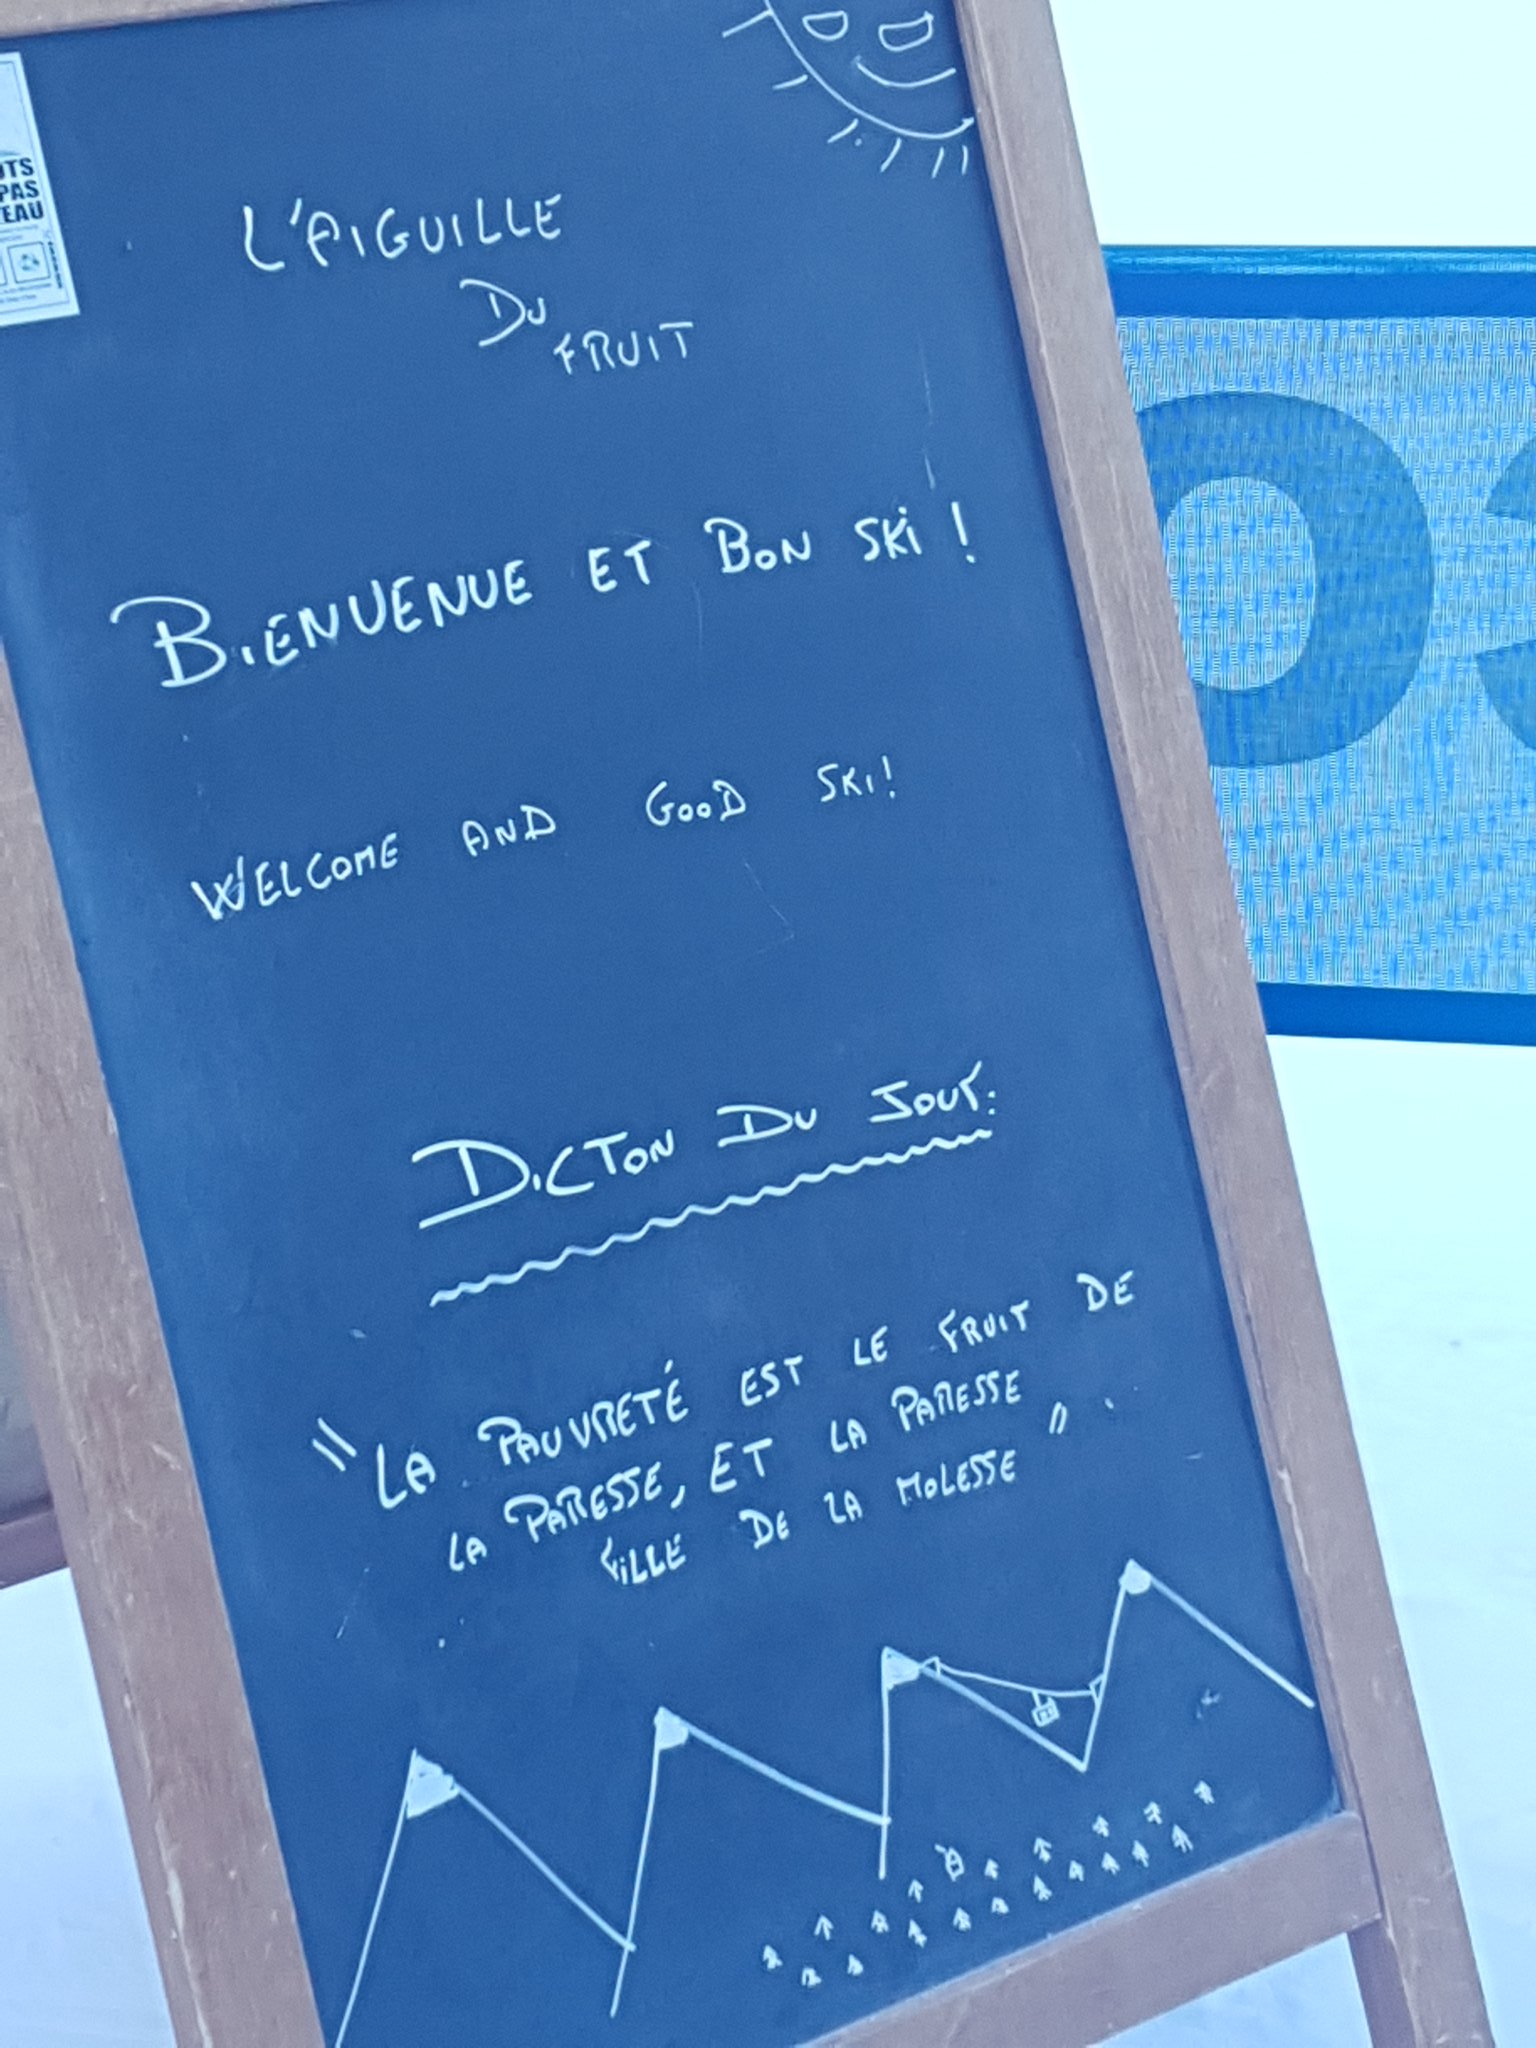 OTS
PAS
TEAU
L'AIGUILLE
DU
FRUIT
BIENVENUE ET BON SKI !
WELCOME AND GOOD SKI!
DICTON DU JOUR:
"LA PAUVRETÉ EST LE FRUIT DE
LA PARESSE, ET LA PARESSE
FILLE DE LA MOLESSE".